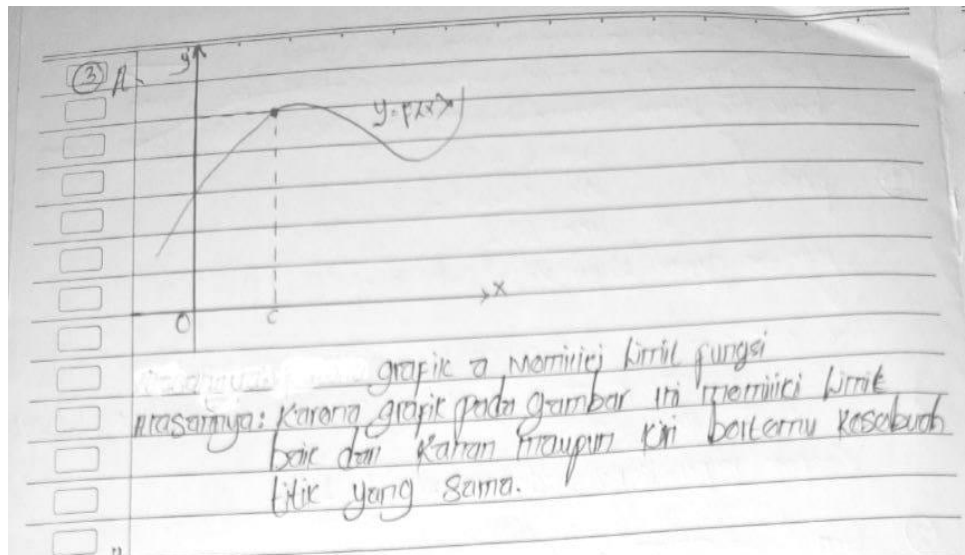 ③ A.
y
y=f(x)
x
O
c
grafik a memiliki Limit fungsi
Alasannya: Karena grafik pada gambar ini memiliki Limit
baik dari Kanan maupun kiri bertemu kesebuah
titik yang sama.